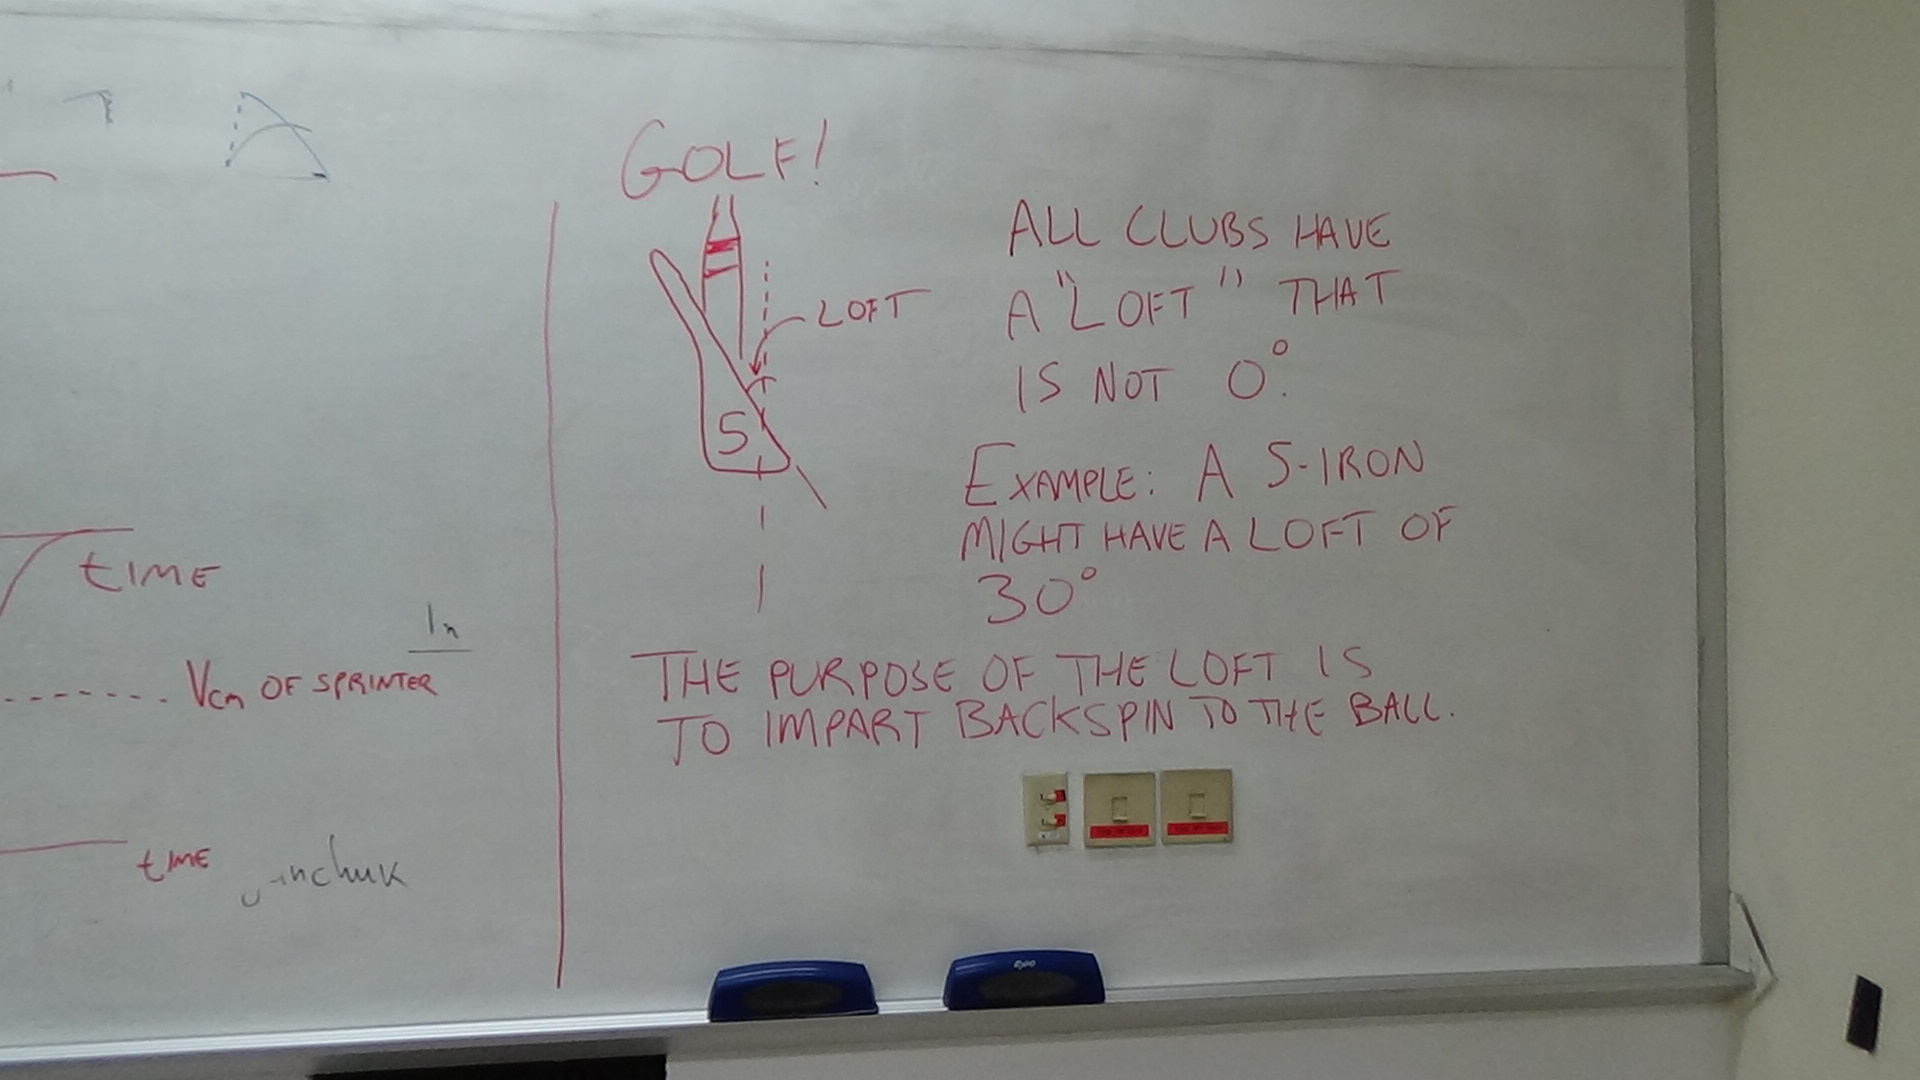 GOLF!
LOFT
5
ALL CLUBS HAVE
A "LOFT" THAT
IS NOT 0°.
EXAMPLE: A 5-IRON
MIGHT HAVE A LOFT OF
30°
THE PURPOSE OF THE LOFT IS
TO IMPART BACKSPIN TO THE BALL.
tIME
Vcm OF SPRINTER
tIME
Expo